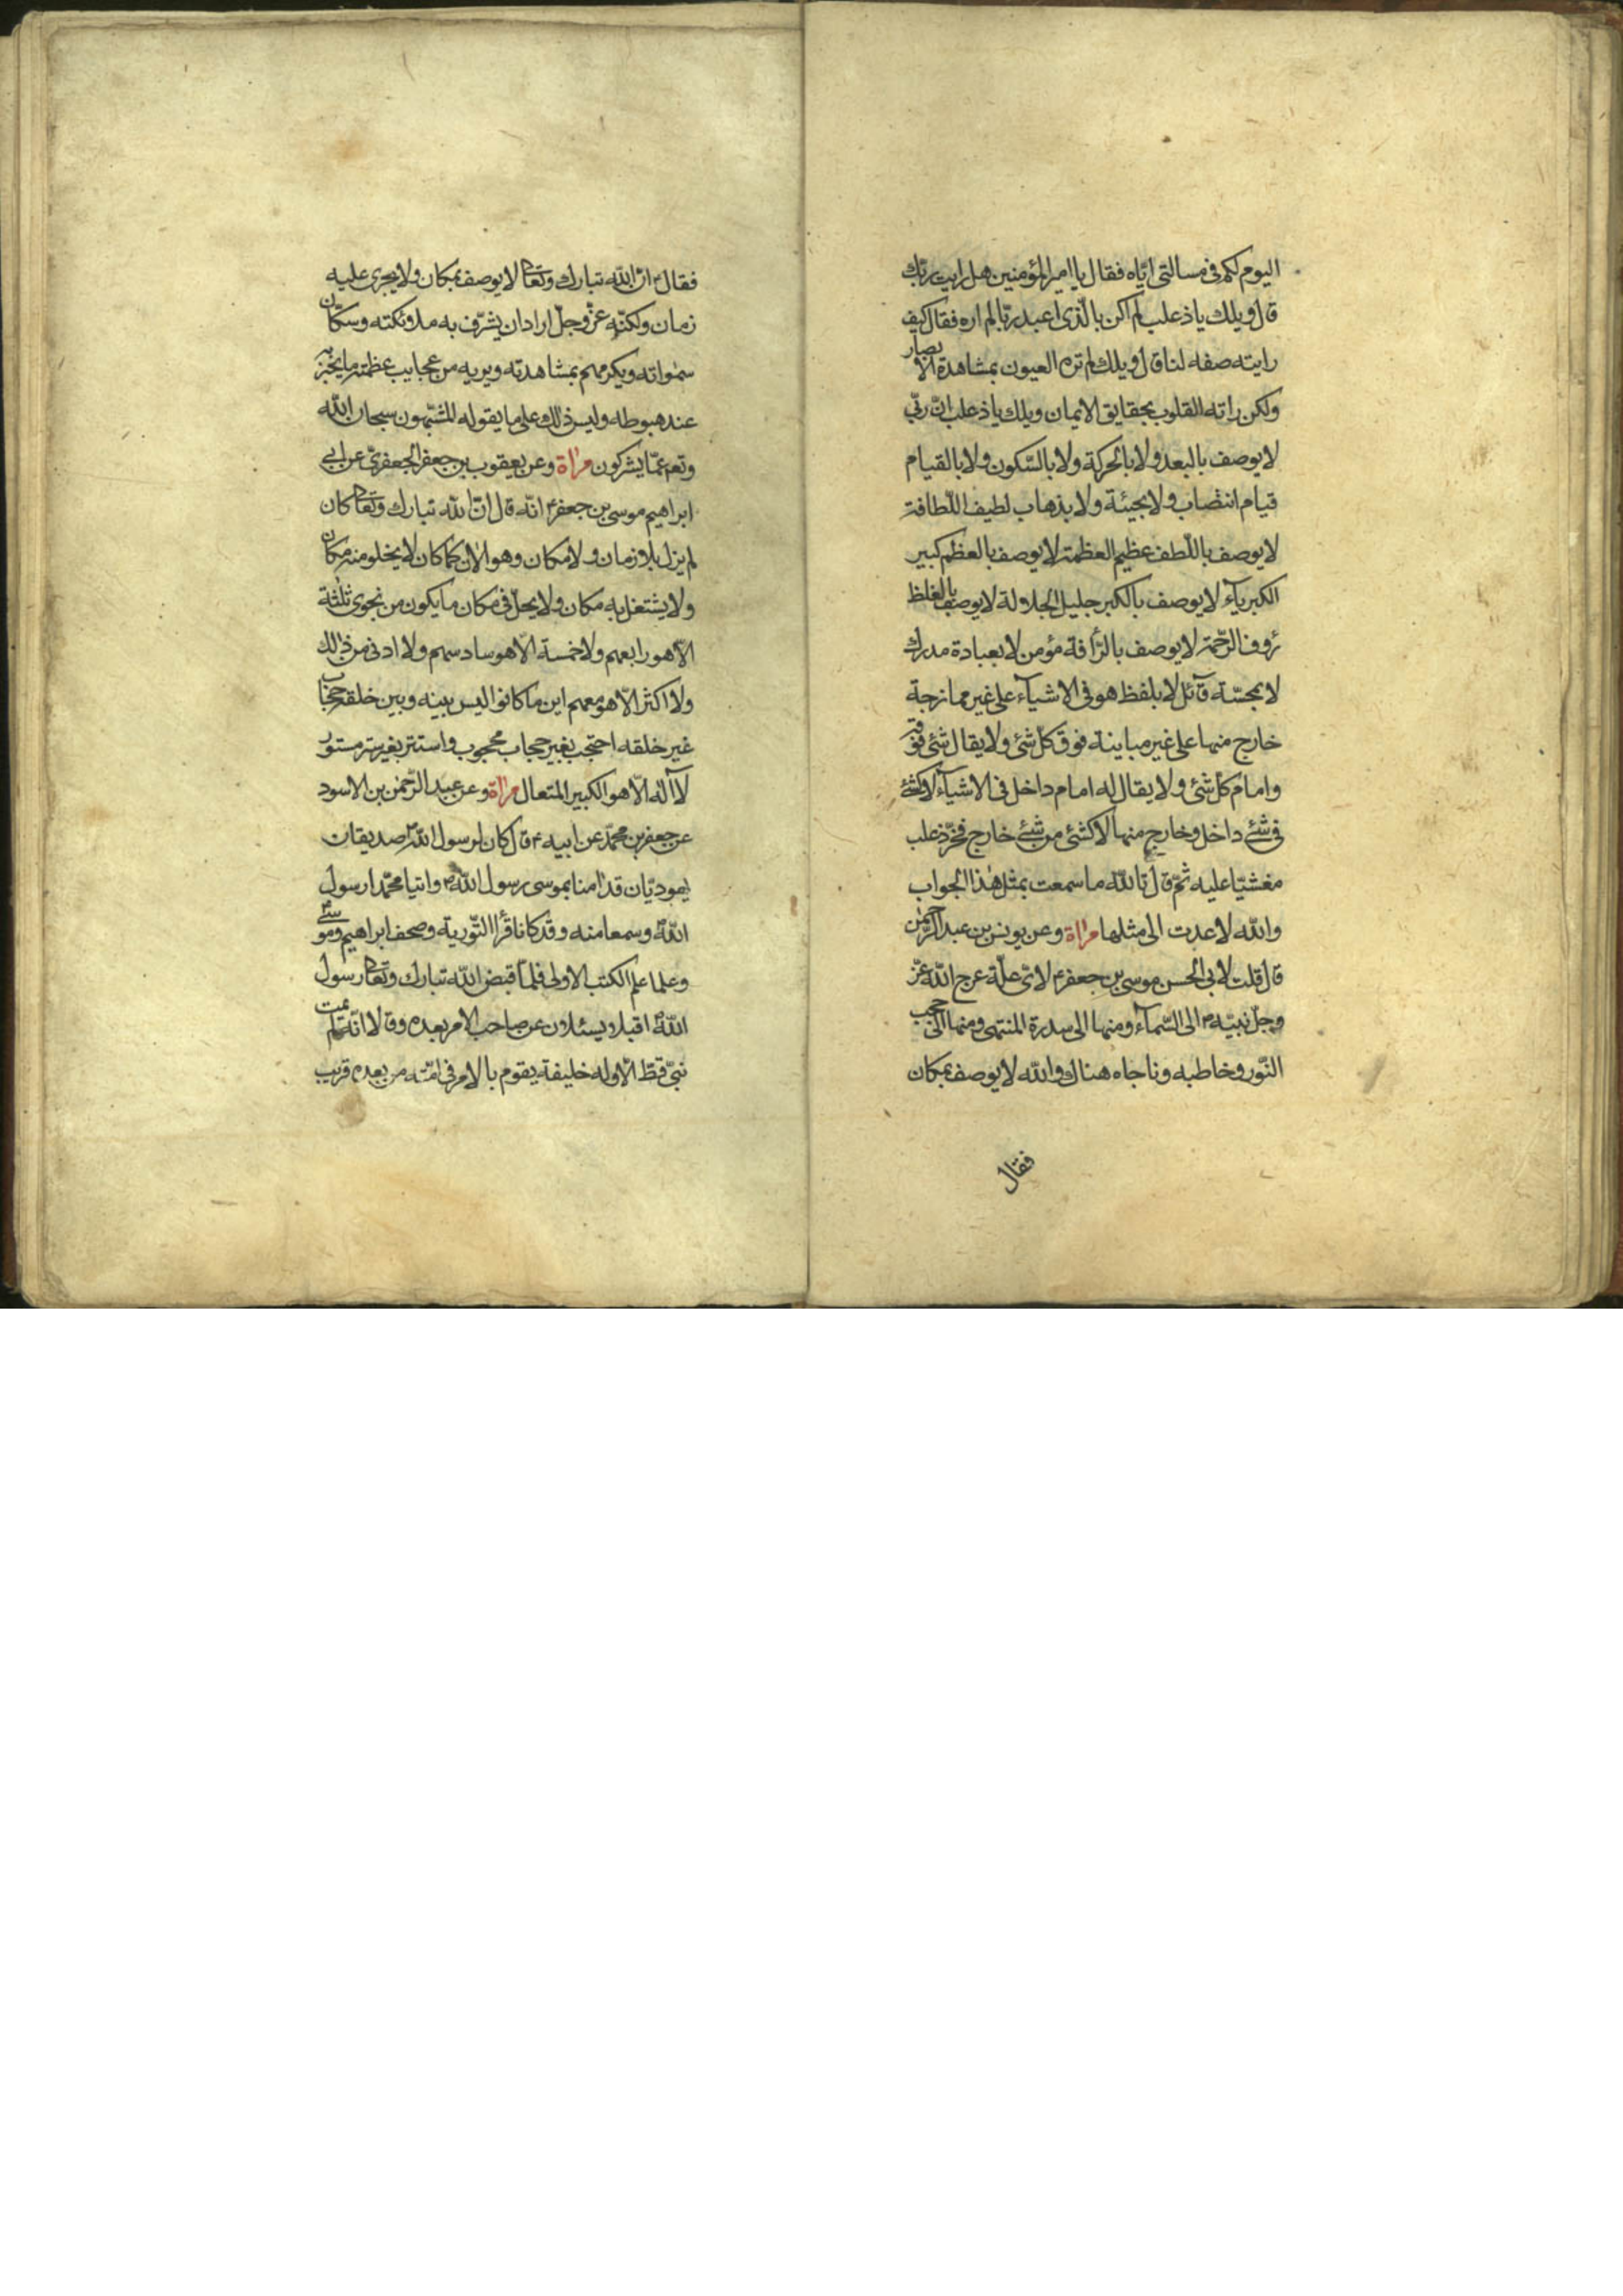 اليوم لكم فى مسالتى اياه فقال يا امير المؤمنين هل رايت ربك
قال ويلك يا ذعلب لم اكن بالذى اعبد ربا لم اره فقال كيف
رايته صفه لنا قال ويلك لم تره العيون بمشاهدة الابصار
ولكن راته القلوب بحقايق الايمان ويلك يا ذعلب انّ ربّى
لا يوصف بالبعد ولا بالحركة ولا بالسّكون ولا بالقيام
قيام انتصاب ولا بجيئة ولا بذهاب لطيف اللّطافة
لا يوصف باللّطف عظيم العظمة لا يوصف بالعظم كبير
الكبرياء لا يوصف بالكبر جليل الجلالة لا يوصف بالغلظ
رؤف الرّحمة لا يوصف بالرّافة مؤمن لا بعبادة مدرك
لا بمجسّة قآئل لا بلفظ هو فى الاشيآء على غير ممازجة
خارج منها على غير مباينة فوق كلّ شئ ولا يقال شئ فوقه
وامام كلّ شئ ولا يقال له امام داخل فى الاشيآء لا كشئ
فى شئ داخل وخارج منها لا كشئ من شئ خارج فخرّ ذعلب
مغشيّا عليه ثمّ قال تاللّه ما سمعت بمثل هذا الجواب
واللّه لا عدت الى مثلها مراة وعن يونس بن عبد الرّحمن
قال قلت لابى الحسن موسى بن جعفر ع لاىّ علّة عرج اللّه عزّ
وجلّ نبيّه ص الى السّمآء ومنها الى سدرة المنتهى ومنها الى حجب
النّور وخاطبه وناجاه هناك واللّه لا يوصف بمكان
فقال
فقال ع انّ اللّه تبارك وتعالى لا يوصف بمكان ولا يجرى عليه
زمان ولكنّه عزّ وجلّ اراد ان يشرّف به ملائكته وسكّان
سمواته ويكرمهم بمشاهدته ويريه من عجايب عظمته ما يخبر به
عند هبوطه وليس ذلك على ما يقوله المشبّهون سبحان اللّه
وتعالى عمّا يشركون مراة وعن يعقوب بن جعفر الجعفرىّ عن ابى
ابراهيم موسى بن جعفر ع انّه قال انّ اللّه تبارك وتعالى كان
لم يزل بلا زمان ولا مكان وهو الان كما كان لا يخلو منه مكان
ولا يشتغل به مكان ولا يحلّ فى مكان ما يكون من نجوى ثلثة
الّا هو رابعهم ولا خمسة الّا هو سادسهم ولا ادنى من ذلك
ولا اكثر الّا هو معهم اين ما كانوا ليس بينه وبين خلقه حجاب
غير خلقه احتجب بغير حجاب محجوب واستتر بغير ستر مستور
لا اله الّا هو الكبير المتعال مراة وعن عبد الرّحمن بن الاسود
عن جعفر بن محمّد عن ابيه ع قال كان لرسول اللّه ص صديقان
يهوديّان قد امنا بموسى رسول اللّه ص واتيا محمّدا رسول
اللّه ص وسمعا منه وقد كانا قرأا التّورية وصحف ابراهيم وموسى
وعلما علم الكتب الاولى فلمّا قبض اللّه تبارك وتعالى رسول
اللّه ص اقبلا ويسئلان عن صاحب الامر بعده وقالا انّه لم يمت
نبىّ قطّ الّا وله خليفة يقوم بالامر فى امّته من بعده قريب